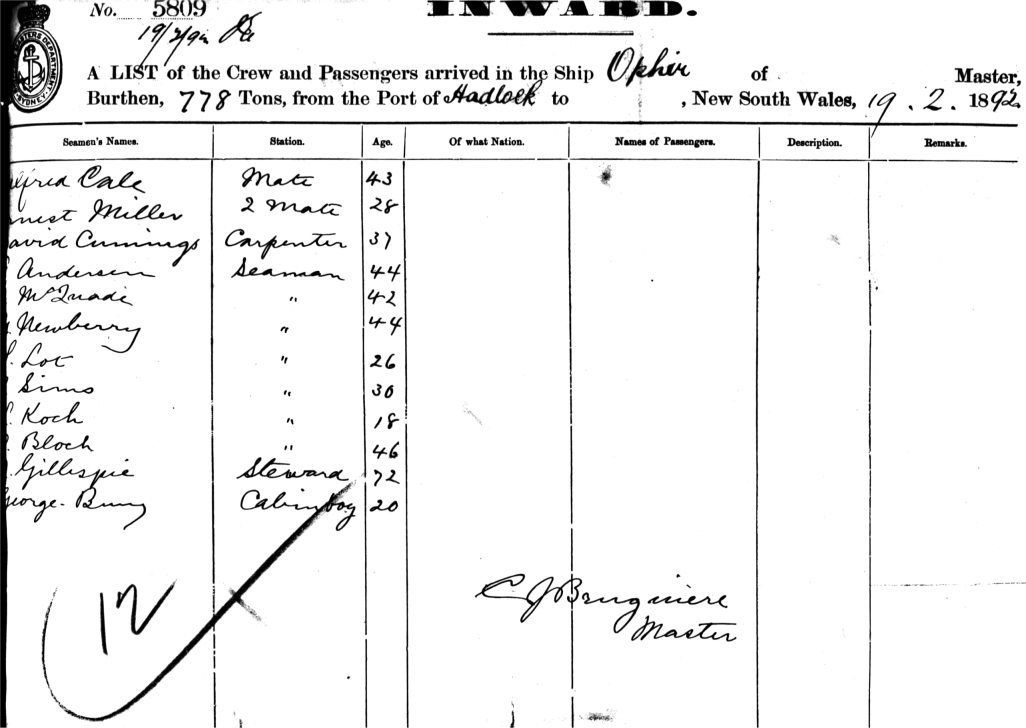 No. 5809
INWARD.
19/2/92
MASTERS DEPARTMENT
SYDNEY
A LIST of the Crew and Passengers arrived in the Ship Ophir of Master,
Burthen, 778 Tons, from the Port of Hadlock to , New South Wales, 19 . 2 . 1892
Seamen's Names. Station. Age. Of what Nation. Names of Passengers. Description. Remarks.
lfred Cale Mate 43
rnest Miller 2 Mate 28
avid Cummings Carpenter 37
Andersen Seaman 44
McQuade " 42
Newberry " 44
Lot " 26
Sims " 30
Koch " 18
Bloch " 46
Gillespie Steward 72
George Cabinboy 20
12
C J Bruguiere
Master